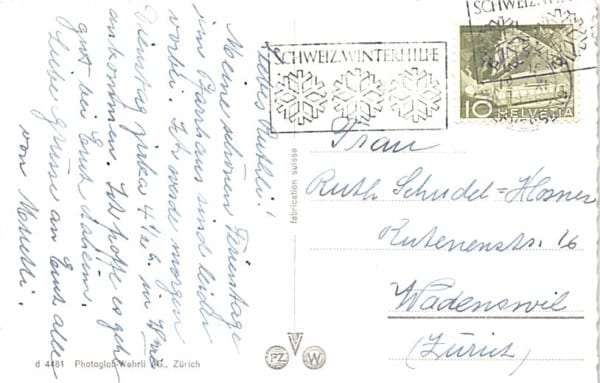 Liebes Ruthli!
Meine schönen Ferientage
im Pfarrhaus sind leider
vorbei. Ich werde morgen
Dienstag zirka 4 ½ h. in
ankommen. Ich hoffe es geht
gut bei Euch daheim.
Liebe Grüsse an Euch alle
von
d 4481 Photoglob-Wehrli AG., Zürich
fabrication suisse
PZ W
SCHWEIZ.WINTERHILFE
SCHWEIZ.WIN
10 HELVETIA
Frau
Ruth Schudel=
16
Wädenswil
(Zürich)